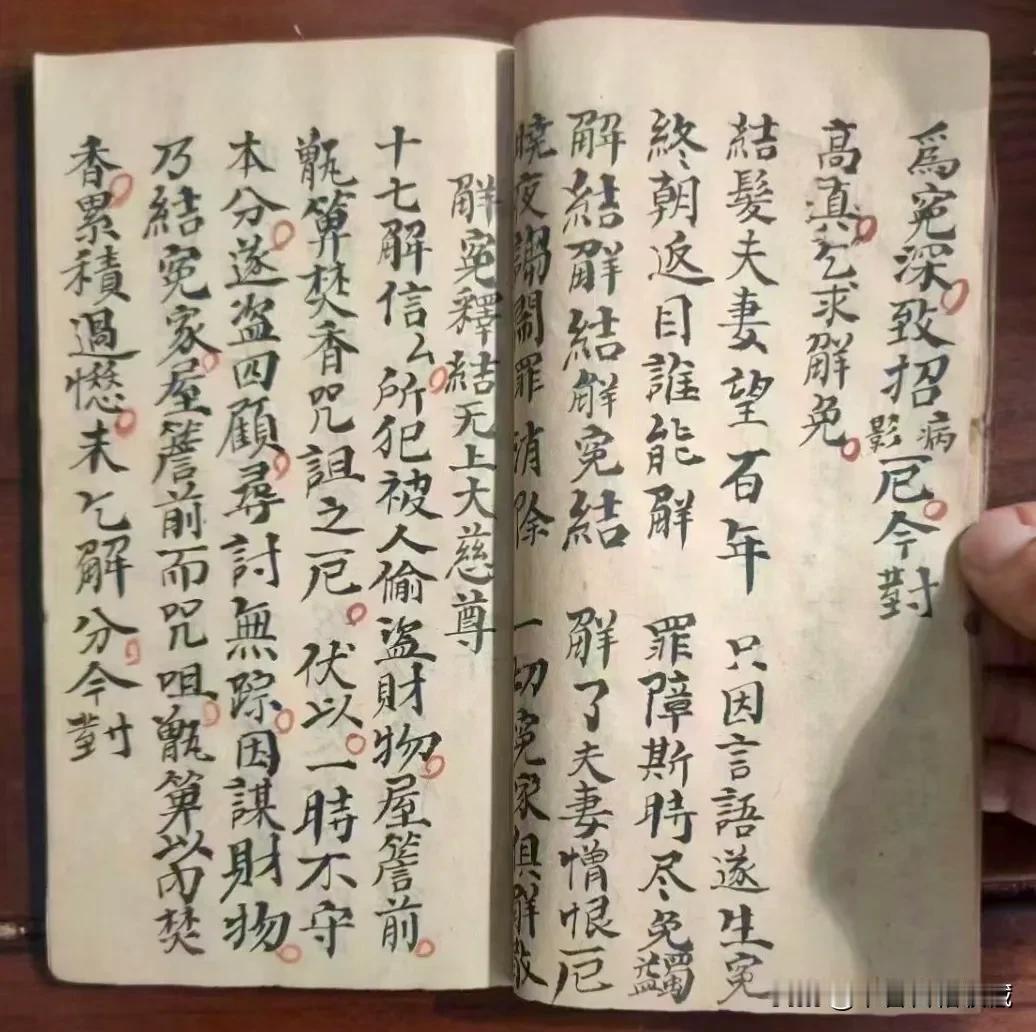 為寃深致招病影厄今對
高真乞求解免
結髮夫妻望百年 只因言語遂生寃
終朝返目誰能解 罪障斯時尽免蠲
解結解結解寃結 解了夫妻憎恨厄
曉夜鬧罪消除 一切寃家俱解散
解寃釋結无上大慈尊
十七解信厶所犯被人偷盜財物屋簷前
甑箅焚香咒詛之厄伏以一時不守
本分遂盜四顧尋討無踪因謀財物
乃結寃家屋簷前而咒咀甑箅以而焚
香累積過愆未乞解分今對